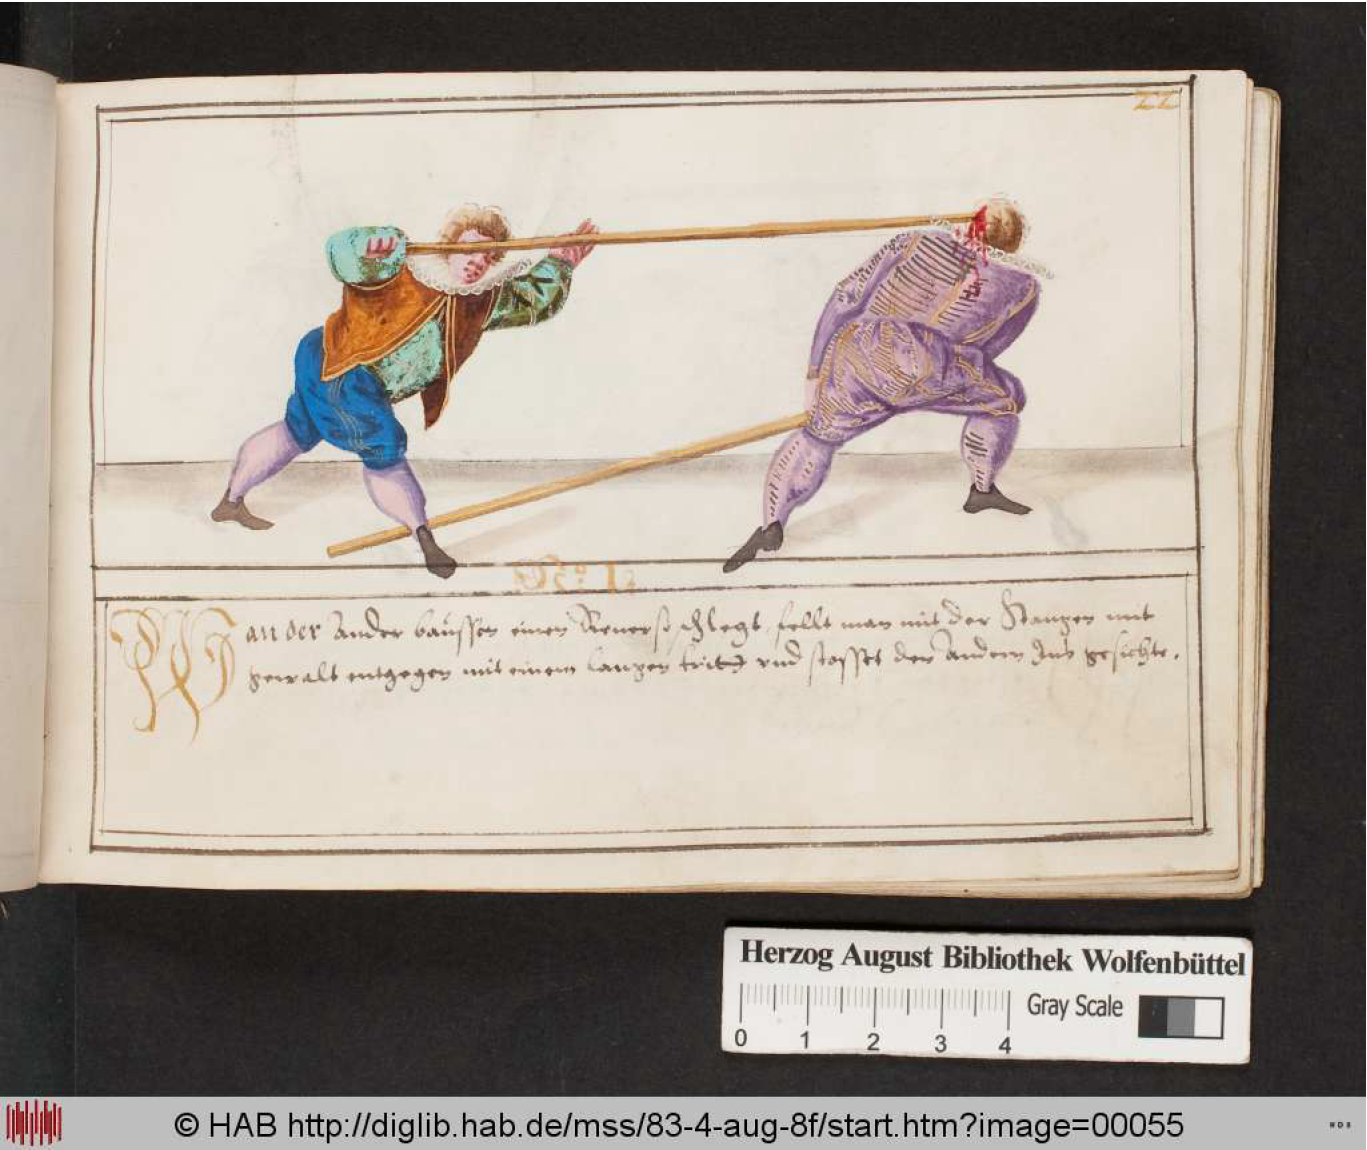 22
No 12
Wan der Ander baussen einen Reuerss schlegt, fellt man mit der Stangen mit
gewalt entgegen mit einem langen tritt vnd stosset den Andern Ins gesichte.
Herzog August Bibliothek Wolfenbüttel
Gray Scale
0 1 2 3 4
© HAB http://diglib.hab.de/mss/83-4-aug-8f/start.htm?image=00055